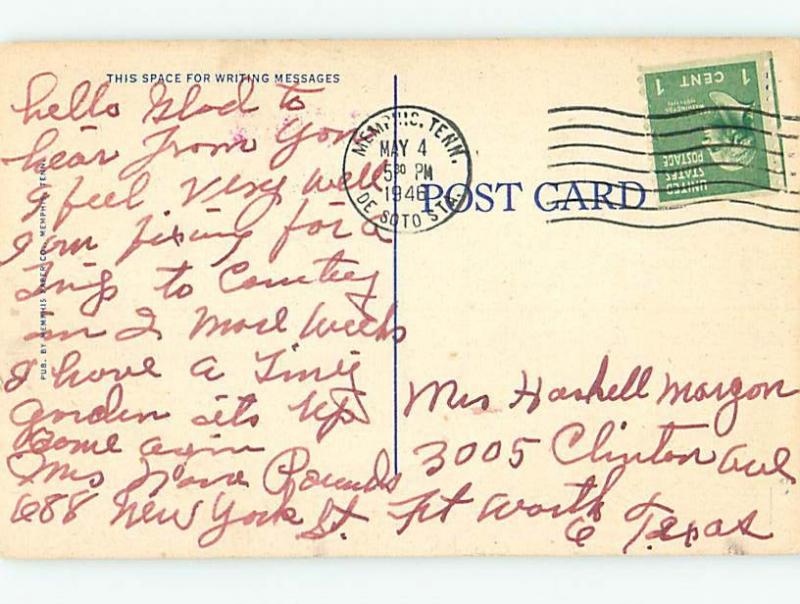 THIS SPACE FOR WRITING MESSAGES
hello Glad to
hear From You
I feel Very well
I am fixing for a
to
in 2 More Weeks
I have a
garden its up
Come
Mrs Rounds
688 New York St.
PUB. BY MEMPHIS PAPER CO., MEMPHIS, TENN.
MEMPHIS, TENN.
MAY 4
5 30 PM
1946
DE SOTO STA.
POST CARD
1 CENT 1
UNITED
STATES
POSTAGE
Mrs Haskell Morgon
3005 Clinton ave
Ft Worth
6 Texas